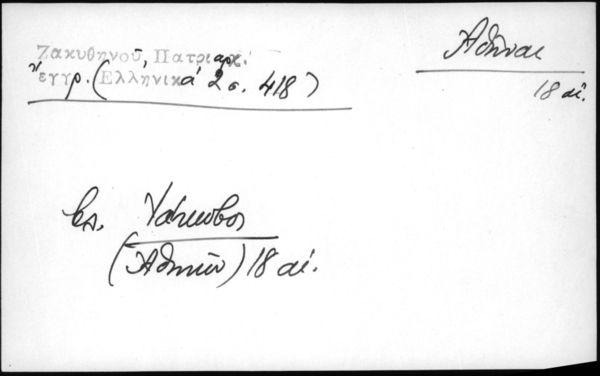 Ζακυθηνοῦ, Πατριαρχ.
ἔγγρ. (Ἑλληνικά 2 σ. 418)
Ἀθῆναι
18 αἰ.
βλ. Ἰάκωβος
(Ἀθηνῶν) 18 αἰ.